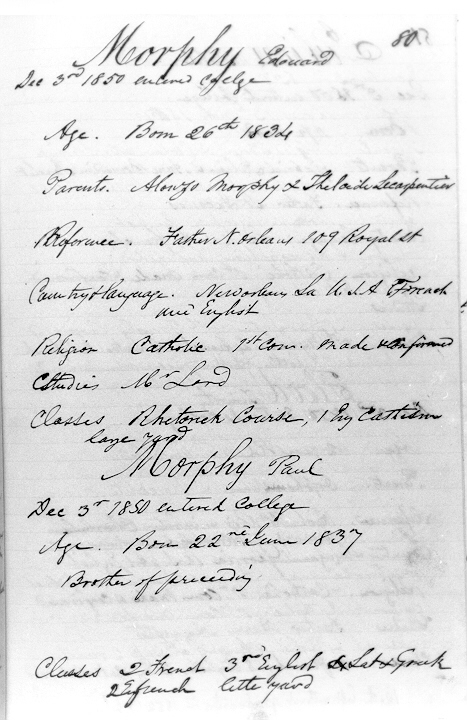 80
Morphy Edouard
Dec 3rd 1850 entered College
Age. Born 26th 1834
Parents. Alonzo Morphy & Thelcide Lecarpentier
Reference. Father N. Orleans 109 Royal St
Country & language. New orleans La U.S.A French
and English
Religion Catholic 1st Com. made & confirmed
Studies Mr Lord
Classes Rhetorick Course, 1 Eng Catechism
large yard
Morphy Paul
Dec 3rd 1850 entered College
Age. Born 22nd June 1837
Brother of preceeding
Classes 2 French 3rd English & Lat & Greek
2 french little yard